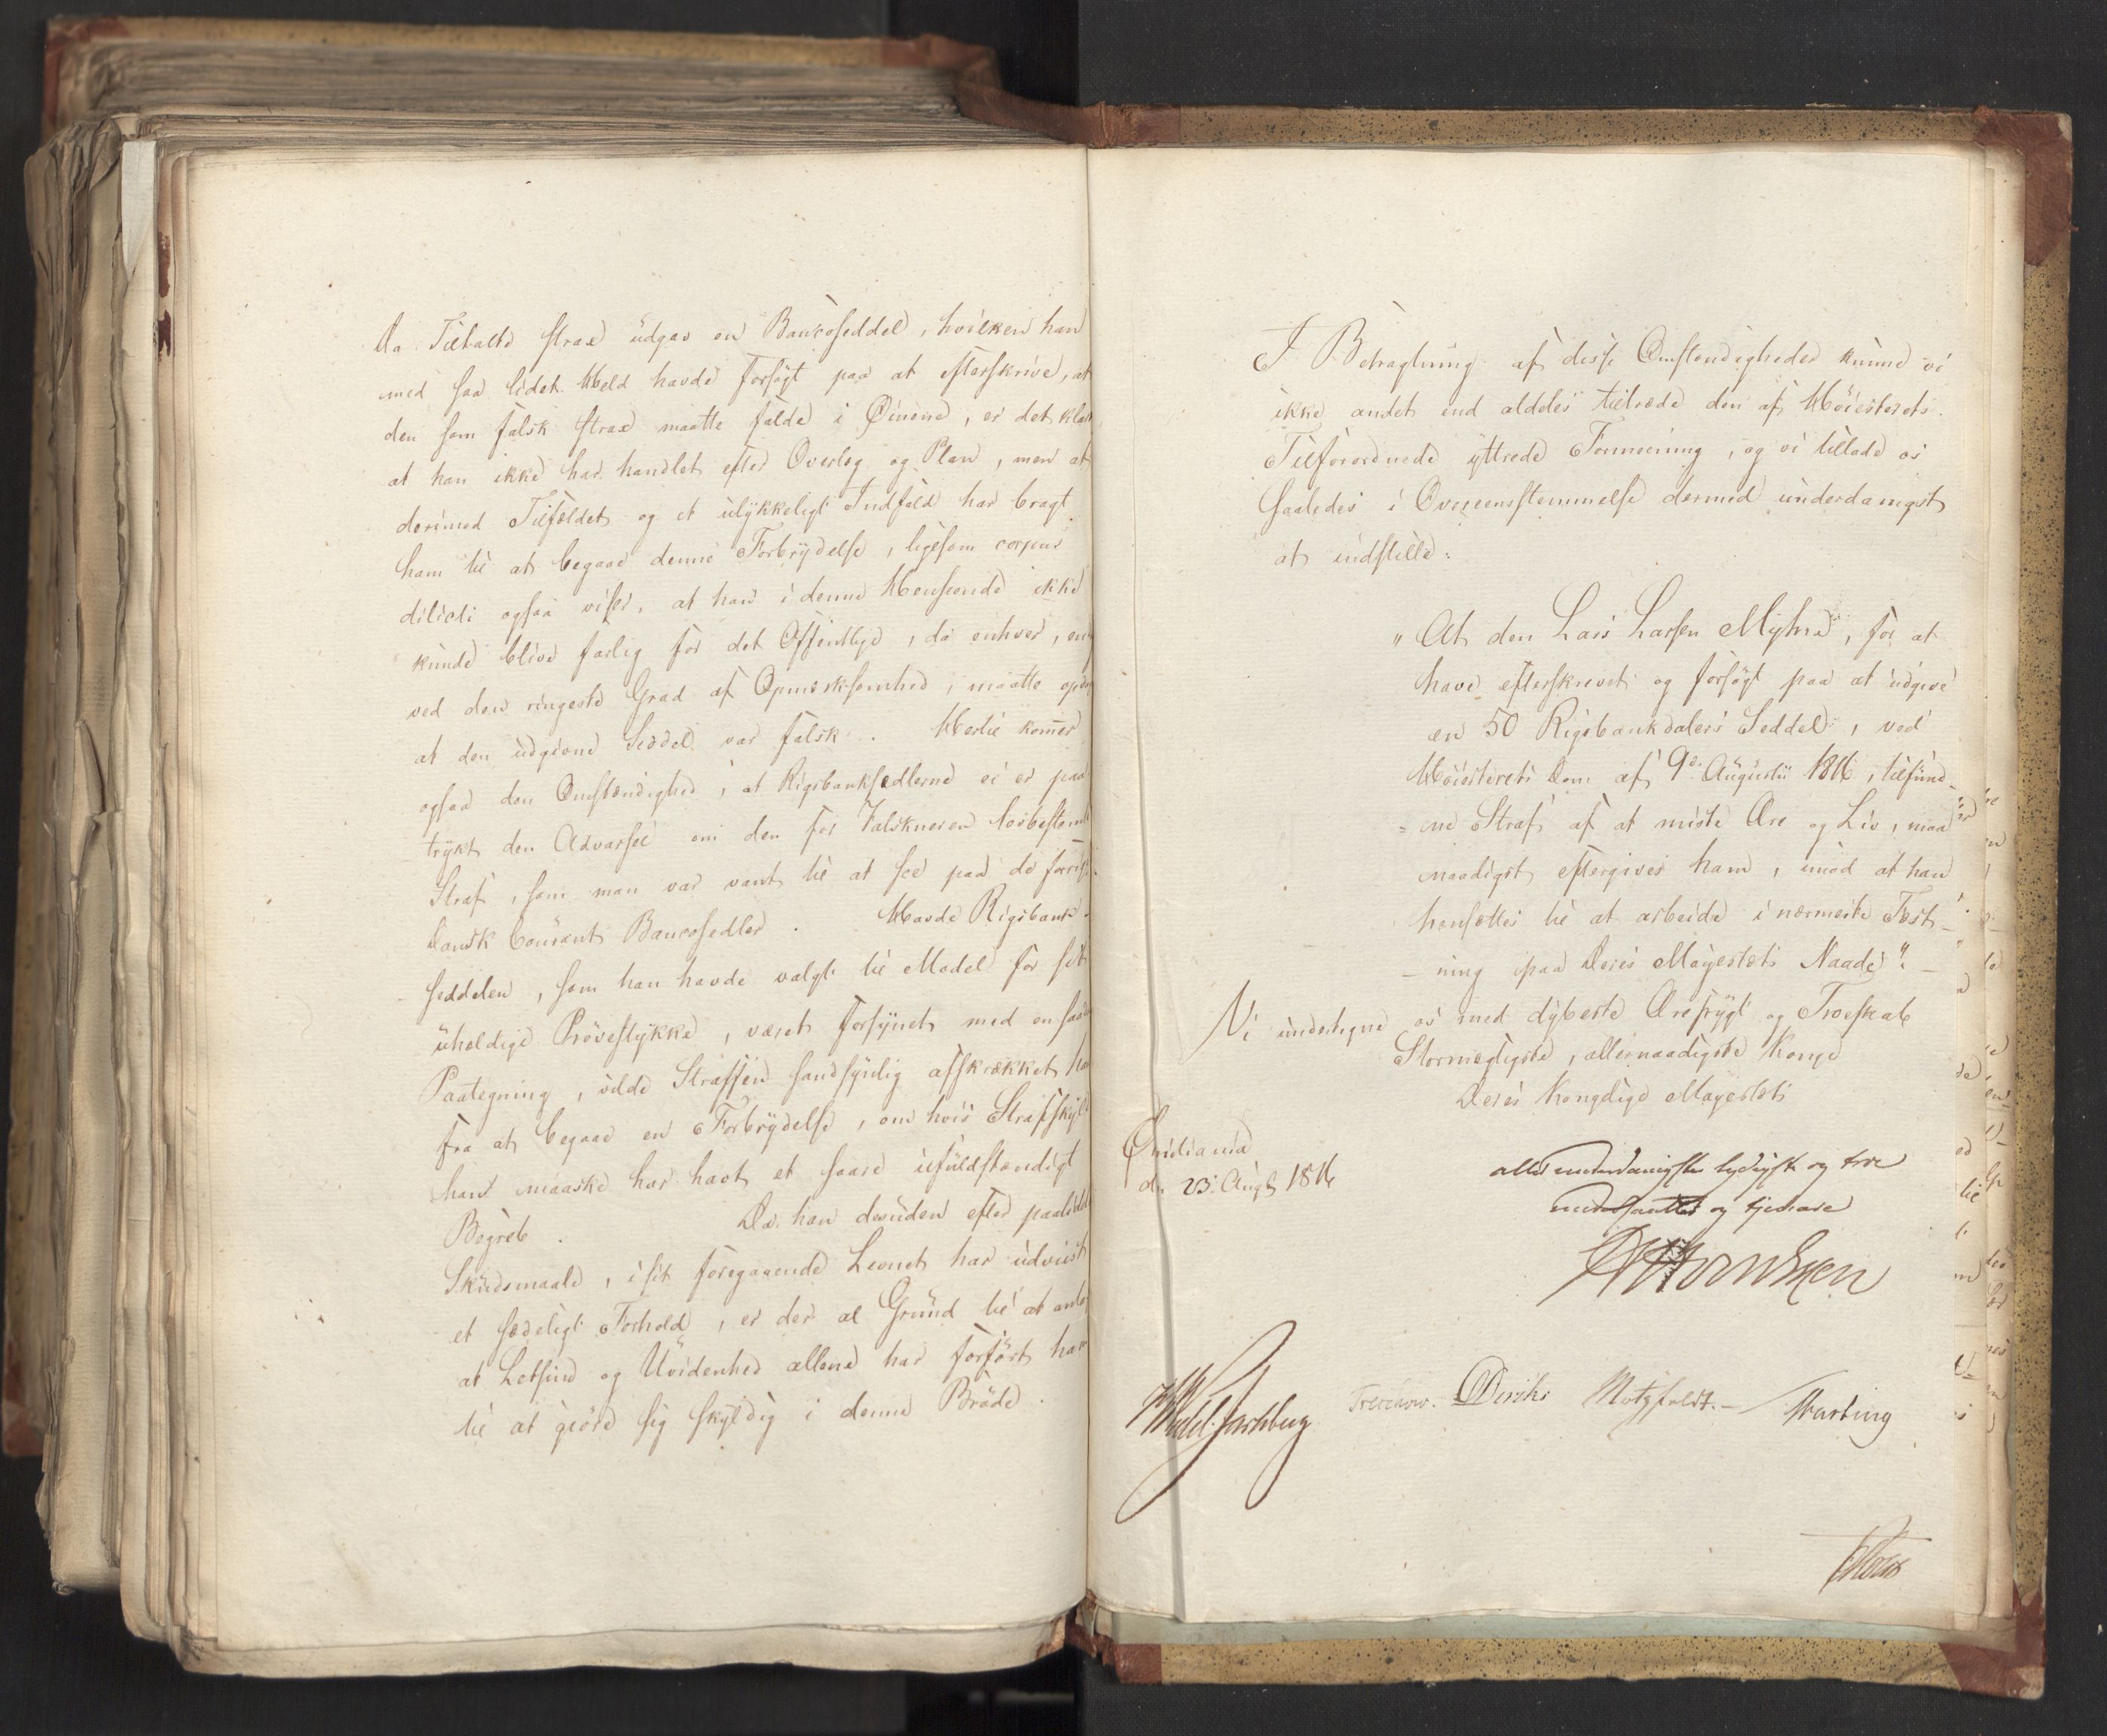 Da Tiltalte strax udgav en Bancoseddel, hvilken han
med saa lidet Held havde forsøgt paa at efterskrive, at
den som falsk strax maatte falde i Øinene, er det klart
at han ikke har handlet efter Overlæg og Plan, men at
derimod Tilfældet og et ulykkeligt Indfald har bragt
ham til at begaae denne Forbrydelse, ligesom corpus
delicti ogsaa viser, at han i denne Henseende ikke
kunde blive farlig for det Offentlige, da enhver, end
ved den ringeste Grad af Opmærksomhed, maatte opdage
at den udgivne Seddel var falsk. Hertil kommer
ogsaa den Omstændighed, at Rigsbanksedlerne ei er paa
trykt den Advarsel om den for Falskneren lovbestemte
Straf, som man var vant til at see paa de forrige
Dansk Courant Bancosedler. Havde Rigsbank-
seddelen, som han havde valgt til Model for sit
uheldige Prøvestykke, været forsynet med en saadan
Paategning, vilde Straffen sandsynlig afskrækket ham
fra at begaae en Forbrydelse, om hvis Strafskyld
han maaske har havt et saare ufuldstændigt
Begreb. Da han desuden efter paalidelige
Skudsmaale, i sit foregaaende Levnet har udviist
et sædeligt Forhold, er der al Grund til at antage
at Letsind og Uvidenhed allene har forført ham
til at giøre sig skyldig i denne Brøde.
I Betragtning af disse Omstændigheder kunne vi
ikke andet end aldeles tiltræde den af Høiesterets
Tilforordnede yttrede Formening, og vi tillade os
saaledes i Overeensstemmelse dermed underdanigst
at indstille:
"At den Lars Larsen Myhre, for at
have efterskrevet og forsøgt paa at udgive
en 50 Rigsbankdalers Seddel, ved
Høiesterets Dom af 9de Augusti 1816, tilfund-
=ne Straf af at miste Ære og Liv, maa
naadigst eftergives ham, imod at han
hensættes til at arbeide i nærmeste Fæst-
-ning paa Deres Majestæts Naade". -
Vi undertegne os med dybeste Ærefrygt og Troeskab
Stormægtigste, allernaadigste Konge
Deres Kongelige Majestæts
Christiania
d. 23. Augt 1816
allerunderdanigste lydigste og troe
undersaatter og tjenare
Treschow. Diriks Motzfeldt. - Krag